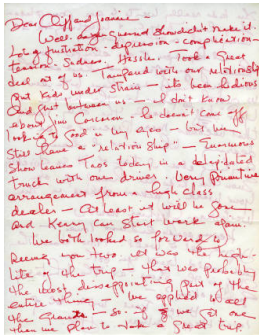 Dear Cliff and Joanne –
Well – and we didn't make it.
Lots of frustration – depression – complication –
tension. Sadness. Hassles. Took a great
deal out of us. Tampered with our relationship
Put kids under strain – its been hideous
And just between us – I don't know
about Jim Corcoran – he doesn't come off
looking to good in my eyes – but we
still have a "relationship" – Enormous
show leaves Taos today in a delapidated
truck with one driver. Very primitive
arrangement from a high class
dealer – At least it will be gone
and Kenny can start work again.
We both looked so forward to
seeing you two not was the high-
lite of the trip – that was probably
the most disappointing part of the
entire thing – we applied to all
the Grants – so – if we get one
then we plan to take a great trip.